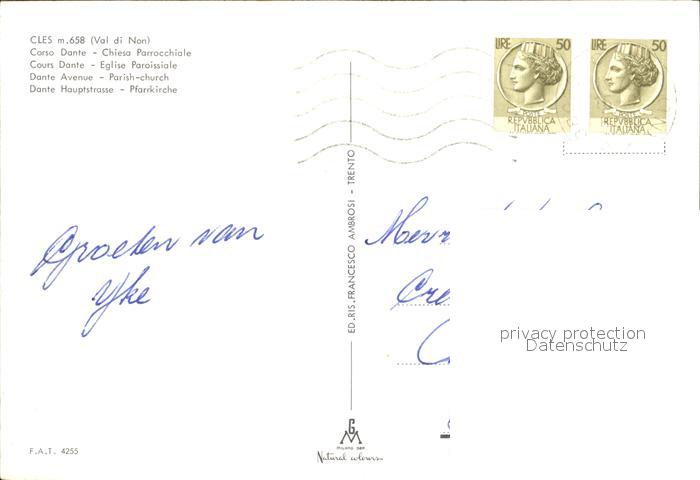 CLES m.658 (Val di Non)
Corso Dante - Chiesa Parrocchiale
Cours Dante - Eglise Paroissiale
Dante Avenue - Parish-church
Dante Hauptstrasse - Pfarrkirche
LIRE 50
POSTE
REPVBBLICA
ITALIANA
LIRE 50
POSTE
REPVBBLICA
ITALIANA
Groeten van
Yke
ED. RIS. FRANCESCO AMBROSI - TRENTO
privacy protection
Datenschutz
F.A.T. 4255
MILANO DEP.
Natural colours